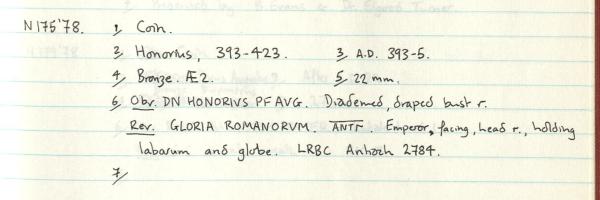 N175'78. 1/ Coin.
2/ Honorius, 393-423. 3/ A.D. 393-5.
4/ Bronze. Æ2. 5/ 22 mm.
6/ Obv. DN HONORIVS PF AVG. Diademed, draped bust r.
Rev. GLORIA ROMANORVM. ANTΓ Emperor, facing, head r., holding
labarum and globe. LRBC Antioch 2784.
7/